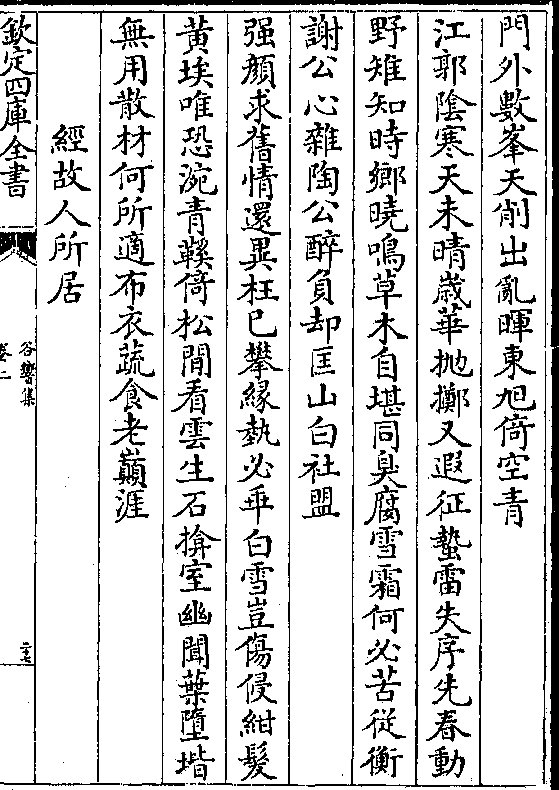 門外數峯天削出亂暉東旭倚空青
江郭陰寒天未晴歳華抛擲又遐征蟄雷失序先春動
野雉知時鄉曉鳴草木自堪同臭腐雪霜何必苦從衡
謝公心雜陶公醉負却匡山白社盟
强顔求舊情還異枉已攀緣埶必乖白雪豈傷侵紺髮
黄埃唯恐涴青鞵倚松間看雲生石揜室幽聞葉墮堦
無用散材何所適布衣蔬食老巔涯
經故人所居
欽定四庫全書
谷響集
卷二
二十七